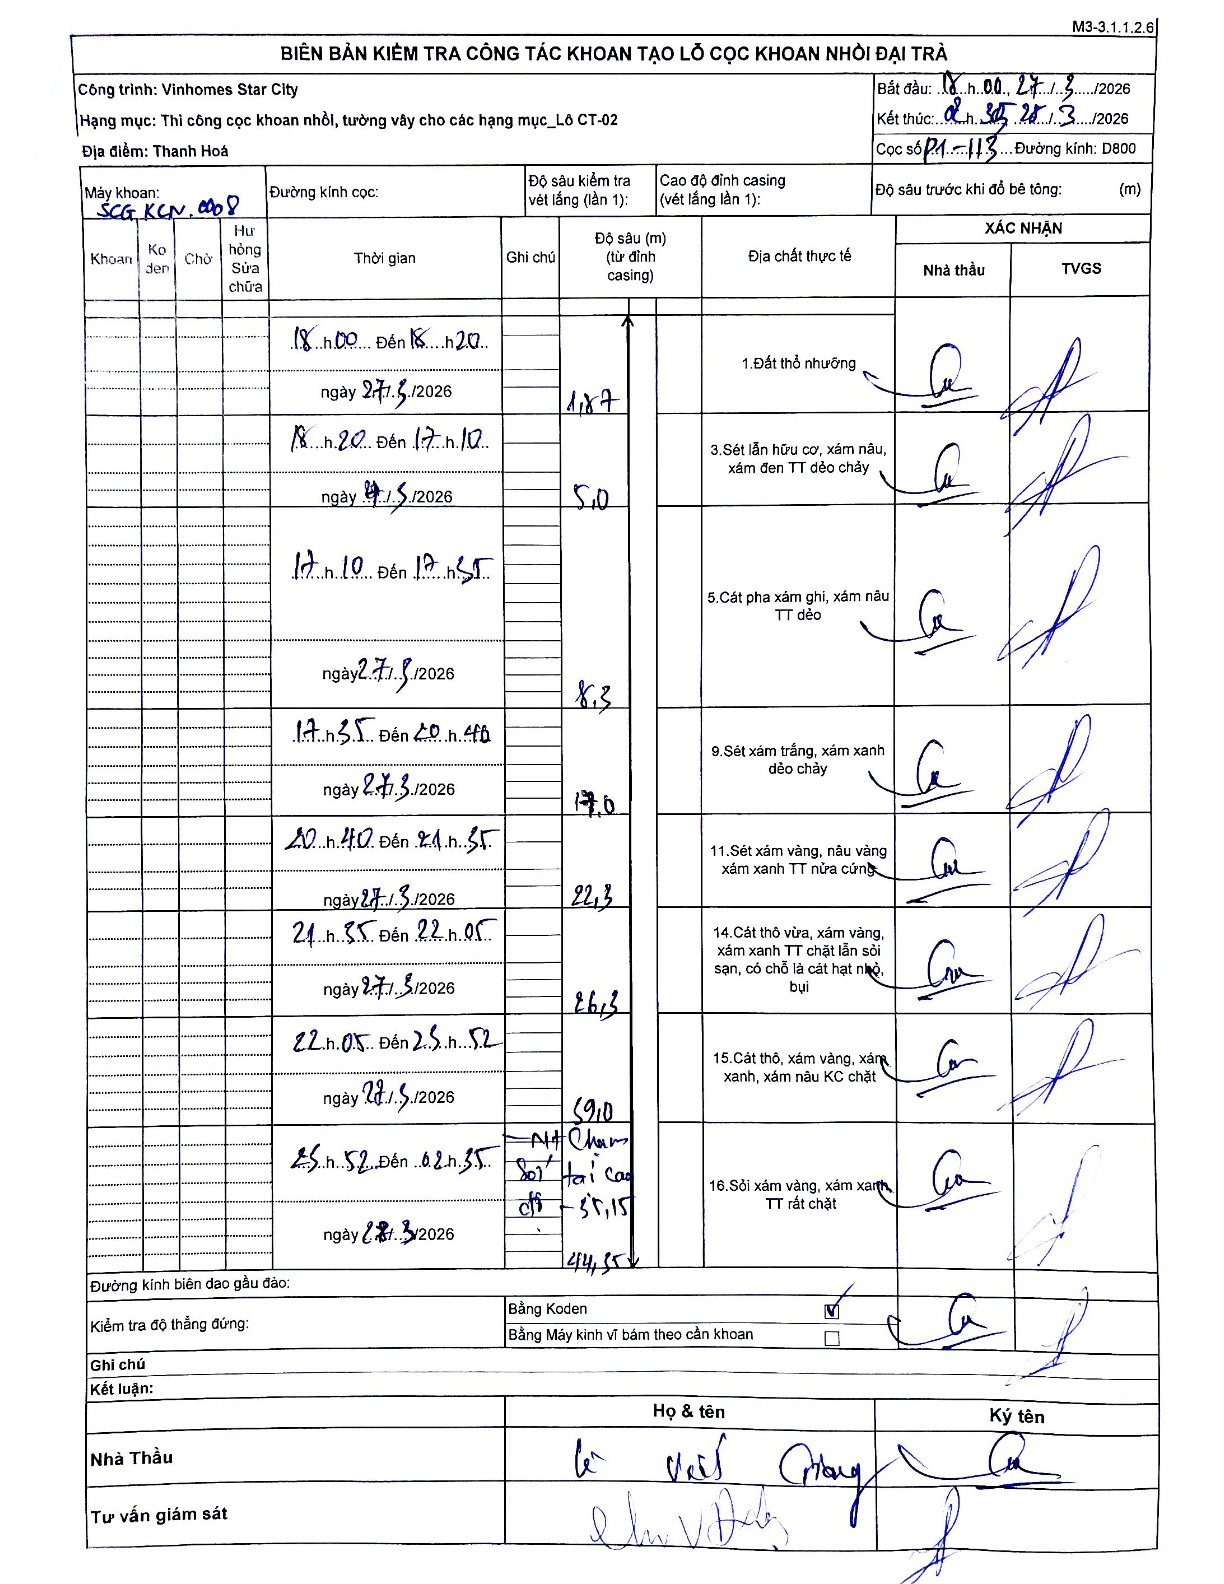 M3-3.1.1.2.6
BIÊN BẢN KIỂM TRA CÔNG TÁC KHOAN TẠO LỖ CỌC KHOAN NHỒI ĐẠI TRÀ
Công trình: Vinhomes Star City
Bắt đầu: 18.h.00, 27../.3...../2026
Hạng mục: Thi công cọc khoan nhồi, tường vây cho các hạng mục_Lô CT-02
Kết thúc: 02.h.35 28../.3..../2026
Địa điểm: Thanh Hoá
Cọc số P1-113...Đường kính: D800
Máy khoan:
SCG KCN.0008
Đường kính cọc:
Độ sâu kiểm tra vét lắng (lần 1):
Cao độ đỉnh casing (vét lắng lần 1):
Độ sâu trước khi đổ bê tông: (m)
Khoan
Ko den
Chờ
Hư hỏng Sửa chữa
Thời gian
Ghi chú
Độ sâu (m) (từ đỉnh casing)
Địa chất thực tế
XÁC NHẬN
Nhà thầu
TVGS
18..h.00... Đến 18....h20..
ngày 27./.3./2026
1,87
1.Đất thổ nhưỡng
18...h.20.. Đến .17..h.10..
ngày 27./.3./2026
5,0
3.Sét lẫn hữu cơ, xám nâu,
xám đen TT dẻo chảy
17..h.10... Đến 17...h35..
ngày27./.3./2026
8,3
5.Cát pha xám ghi, xám nâu
TT dẻo
17..h35.. Đến 20..h.40
ngày 27./.3./2026
17,0
9.Sét xám trắng, xám xanh
dẻo chảy
20...h.40. Đến .21.h..35.
ngày27./.3./2026
22,3
11.Sét xám vàng, nâu vàng
xám xanh TT nửa cứng
21..h..35. Đến 22.h.05..
ngày27./.3/2026
26,3
14.Cát thô vừa, xám vàng,
xám xanh TT chặt lẫn sỏi
sạn, có chỗ là cát hạt nhỏ,
bụi
22.h.05.. Đến 23.h...52
ngày 27/.3/2026
39,0
15.Cát thô, xám vàng, xám
xanh, xám nâu KC chặt
23..h..52..Đến ..02.h.35.
ngày 28/.3/2026
Chạm
Sỏi tại cao
độ -35,15
44,35
16.Sỏi xám vàng, xám xanh
TT rất chặt
Đường kính biên dao gầu đào:
Kiểm tra độ thẳng đứng:
Bằng Koden ☑
Bằng Máy kinh vĩ bám theo cần khoan ☐
Ghi chú
Kết luận:
Họ & tên
Ký tên
Nhà Thầu
Lê Viết
Tư vấn giám sát